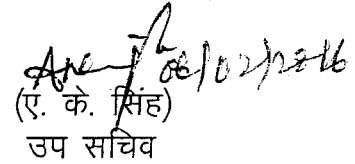 08/02/2016
(ए. के. सिंह)
उप सचिव